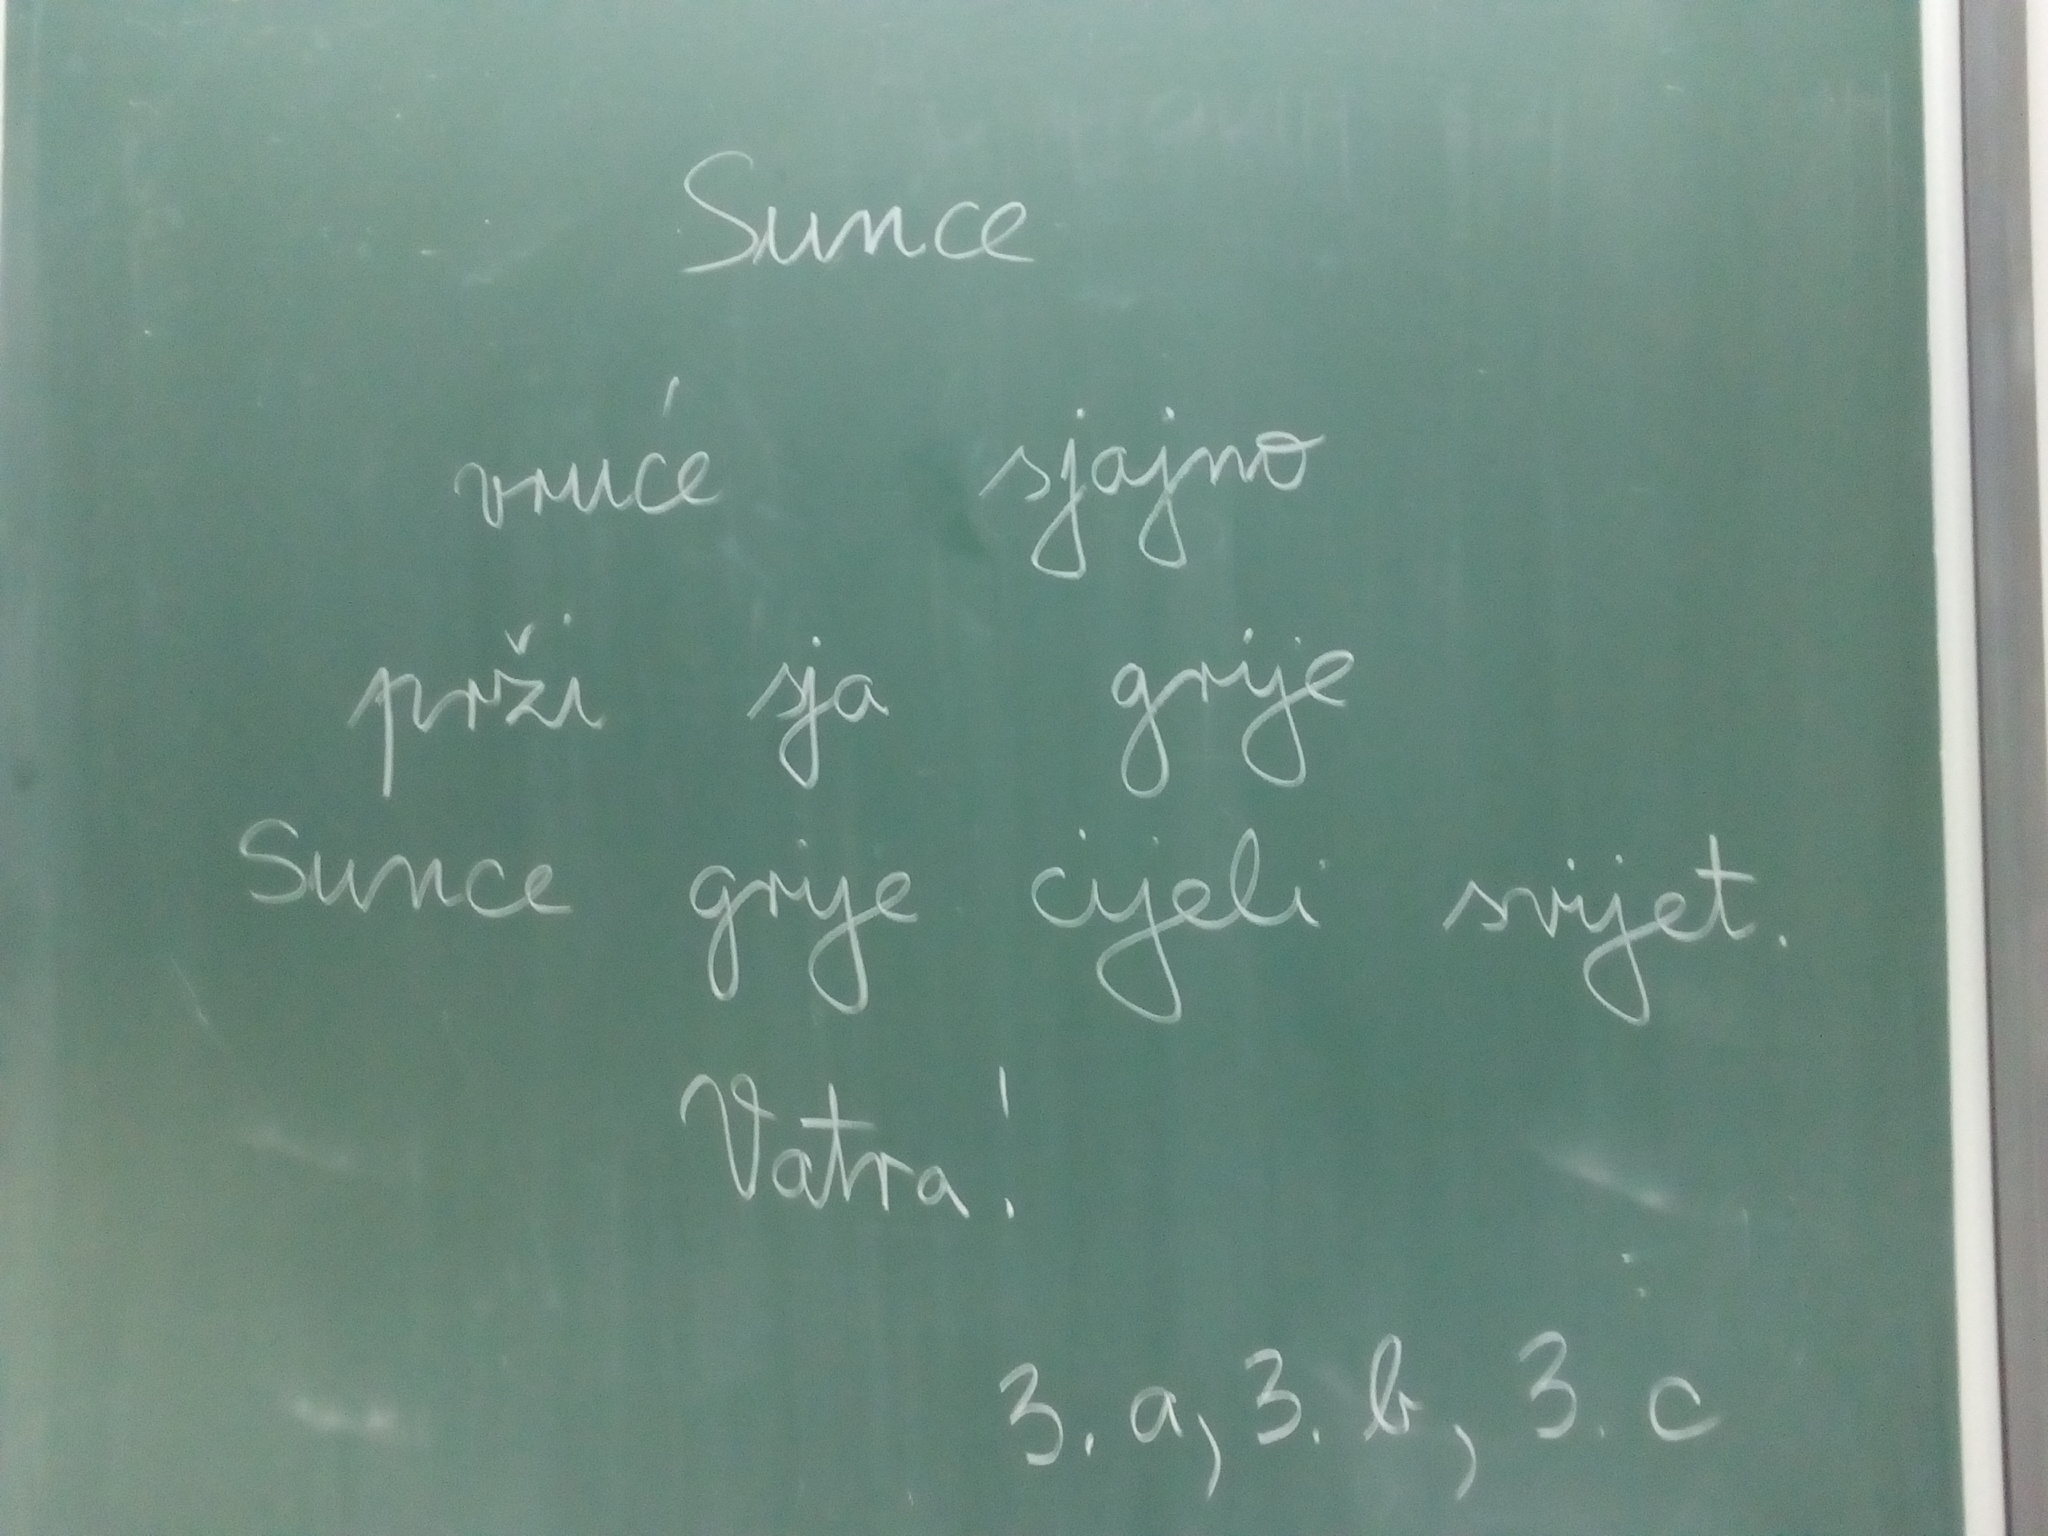 Sunce
vruće sjajno
prži sja grije
Sunce grije cijeli svijet.
Vatra!
3. a, 3. b, 3. c